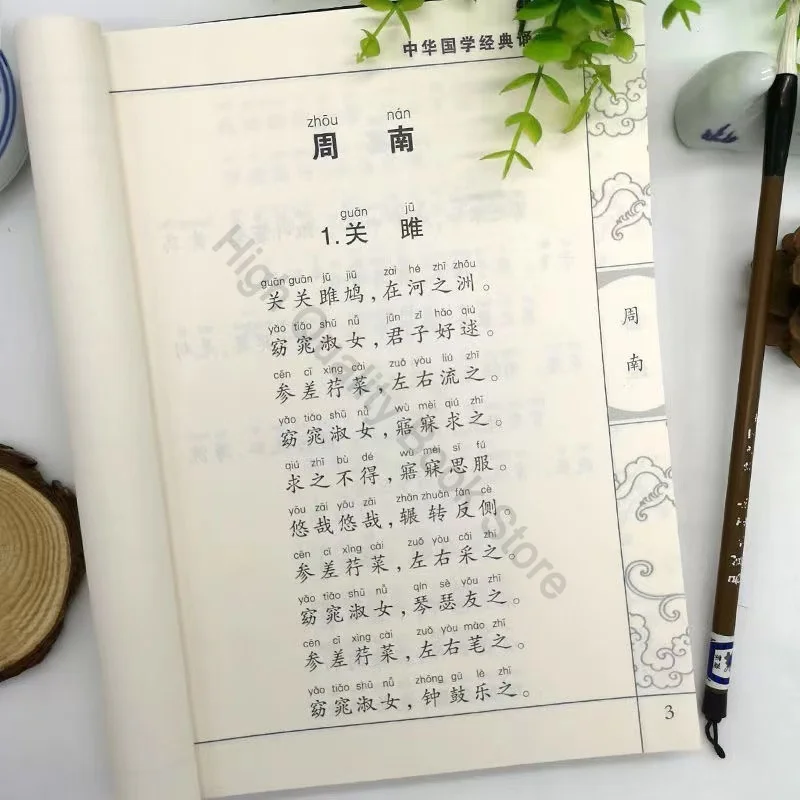 中华国学经典诵
zhōu nán
周 南
guān jū
1.关 雎
guān guān jū jiū zài hé zhī zhōu
关关雎鸠,在河之洲。
yǎo tiǎo shū nǚ jūn zǐ hǎo qiú
窈窕淑女,君子好逑。
cēn cī xìng cài zuǒ yòu liú zhī
参差荇菜,左右流之。
yǎo tiǎo shū nǚ wù mèi qiú zhī
窈窕淑女,寤寐求之。
qiú zhī bù dé wù mèi sī fú
求之不得,寤寐思服。
yōu zāi yōu zāi zhǎn zhuǎn fǎn cè
悠哉悠哉,辗转反侧。
cēn cī xìng cài zuǒ yòu cǎi zhī
参差荇菜,左右采之。
yǎo tiǎo shū nǚ qín sè yǒu zhī
窈窕淑女,琴瑟友之。
cēn cī xìng cài zuǒ yòu mào zhī
参差荇菜,左右芼之。
yǎo tiǎo shū nǚ zhōng gǔ lè zhī
窈窕淑女,钟鼓乐之。
周南
3
High Quality Book Store